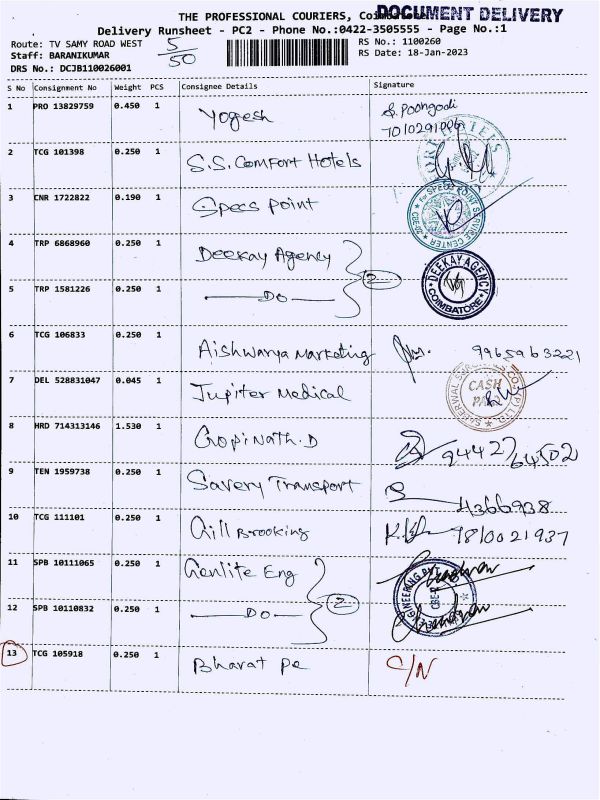 THE PROFESSIONAL COURIERS, Coi
DOCUMENT DELIVERY
Delivery Runsheet - PC2 - Phone No.:0422-3505555 - Page No.:1
Route: TV SAMY ROAD WEST 5/50 RS No.: 1100260
Staff: BARANIKUMAR RS Date: 18-Jan-2023
DRS No.: DCJB110026001
S No Consignment No Weight PCS Consignee Details Signature
1 PRO 13829759 0.450 1 Yogesh S. Poongodi
2 TCG 101398 0.250 1 S.S. Comfort Hotels
3 CNR 1722822 0.190 1 Specs Point
SPECS POINT SERVICE CENTER
4 TRP 6868960 0.250 1 Deekay Agency 2
DEEKAY AGENCY COIMBATORE
5 TRP 1581226 0.250 1 Do
6 TCG 106833 0.250 1 Aishwarya Marketing 9965963221
7 DEL 528831047 0.045 1 Jupiter Medical
CASH PAID
8 HRD 714313146 1.530 1 Gopinath.D 9442764502
9 TEN 1959738 0.250 1 Savery Transport 4366938
10 TCG 111101 0.250 1 Gill Brooking 9810021937
11 SPB 10111065 0.250 1 Genlite Eng 2
12 SPB 10110832 0.250 1 Do
13 TCG 105918 0.250 1 Bharat Pe C/N